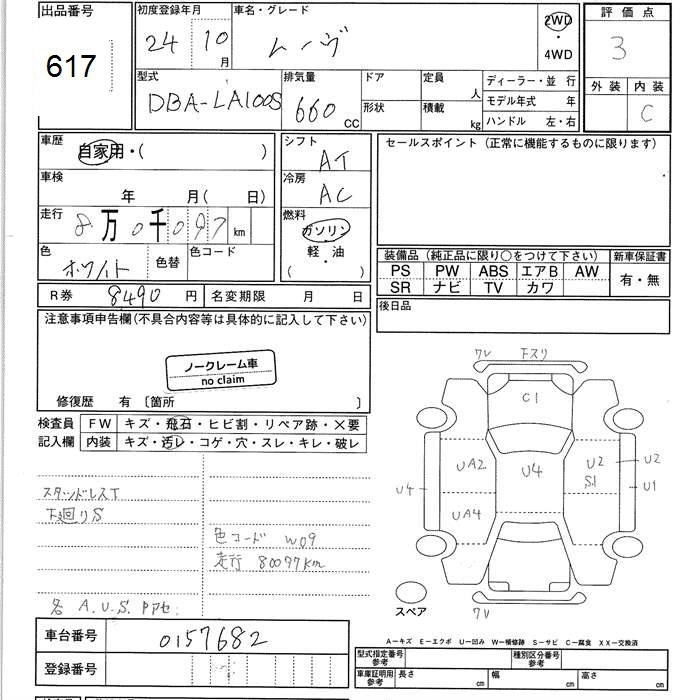 出品番号
617
初度登録年月
24 10 月
車名・グレード
ムーヴ
2WD
・
4WD
評価点
3
外装 内装
C
型式
DBA-LA100S
排気量
660 CC
ドア
形状
定員
人
積載
kg
ディーラー・並行
モデル年式 年
ハンドル 左・右
車歴
自家用・( )
車検
年 月( 日)
走行
8万0千097 km
色
ホワイト
色替
色コード
シフト
AT
冷房
AC
燃料
ガソリン
軽・油
( )
セールスポイント(正常に機能するものに限ります)
装備品(純正品に限り○をつけて下さい)
PS PW ABS エアB AW
SR ナビ TV カワ
新車保証書
有・無
R券 8490 円
名変期限 月 日
後日品
注意事項申告欄(不具合内容等は具体的に記入して下さい)
ノークレーム車
no claim
修復歴 有 〔箇所 〕
検査員
記入欄
FW キズ・飛石・ヒビ割・リペア跡・×要
内装 キズ・汚レ・コゲ・穴・スレ・キレ・破レ
スタッドレスT
下廻りS
色コード W09
走行 80097km
各 A.U.S. PPセ.
7V 下スリ
C1
UA2 U4 U2 S1 U2
U4 U1
UA4
スペア
7V
A-キズ E-エクボ U-凹み W-補修跡 S-サビ C-腐食 XX-交換済
車台番号
0157682
登録番号
型式指定番号
参考
種別区分番号
参考
車庫証明用
参考
長さ cm
幅 cm
高さ cm